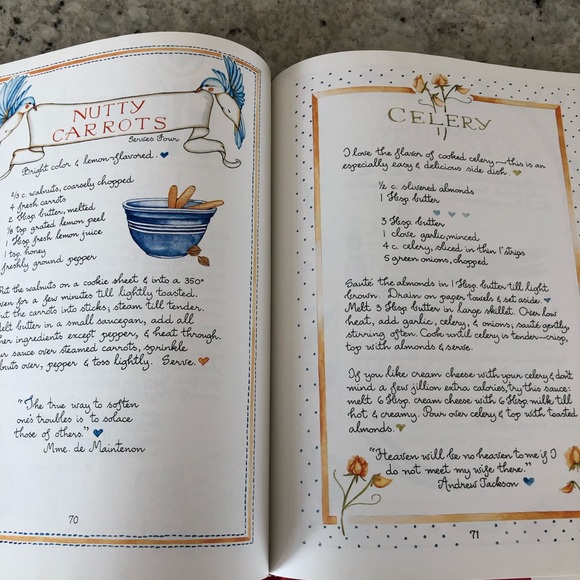 NUTTY
CARROTS
Serves Four
Bright color & lemon-flavored.
2/3 c. walnuts, coarsely chopped
4 fresh carrots
2 Tbsp. butter, melted
1/8 tsp. grated lemon peel
1 Tbsp. fresh lemon juice
1 tsp. honey
freshly ground pepper
Put the walnuts on a cookie sheet & into a 350°
oven for a few minutes till lightly toasted.
Cut the carrots into sticks; steam till tender.
Melt butter in a small saucepan, add all
other ingredients except pepper, & heat through.
Pour sauce over steamed carrots, sprinkle
walnuts over, pepper & toss lightly. Serve.
"The true way to soften
one's troubles is to solace
those of others."
Mme. de Maintenon
70
CELERY
I love the flavor of cooked celery—this is an
especially easy & delicious side dish.
½ c. slivered almonds
1 Tbsp. butter
3 Tbsp. butter
1 clove garlic, minced
4 c. celery, sliced in thin 1" strips
5 green onions, chopped
Sauté the almonds in 1 Tbsp. butter till light
brown. Drain on paper towels & set aside.
Melt 3 Tbsp. butter in large skillet. Over low
heat, add garlic, celery, & onions; sauté gently,
stirring often. Cook until celery is tender-crisp,
top with almonds & serve.
If you like cream cheese with your celery & don't
mind a few jillion extra calories, try this sauce:
melt 6 Tbsp. cream cheese with 6 Tbsp. milk till
hot & creamy. Pour over celery & top with toasted
almonds.
"Heaven will be no heaven to me if I
do not meet my wife there."
Andrew Jackson
71